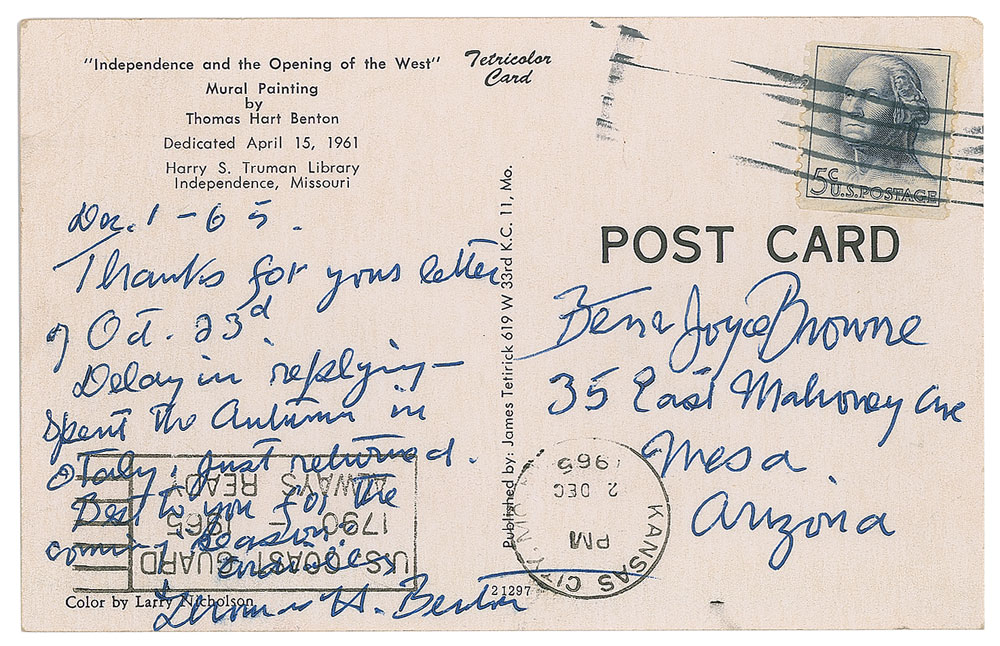 "Independence and the Opening of the West"
Mural Painting
by
Thomas Hart Benton
Dedicated April 15, 1961
Harry S. Truman Library
Independence, Missouri
Tetricolor
Card
5c
U.S. POSTAGE
POST CARD
Dec. 1 - 65.
Thanks for your letter
of Oct. 23d
Delay in replying—
Spent the Autumn in
Italy, just returned.
Best to you for the
coming season.
Thomas H. Benton
Color by Larry Nicholson
Published by: James Tetirick 619 W 33rd K.C. 11, Mo.
21297
Joyce Browne
35 East Mahoney Ave
Mesa
Arizona
KANSAS CITY, MO
PM
2 DEC
1965
U.S. COAST GUARD
1790 – 1965
ALWAYS READY